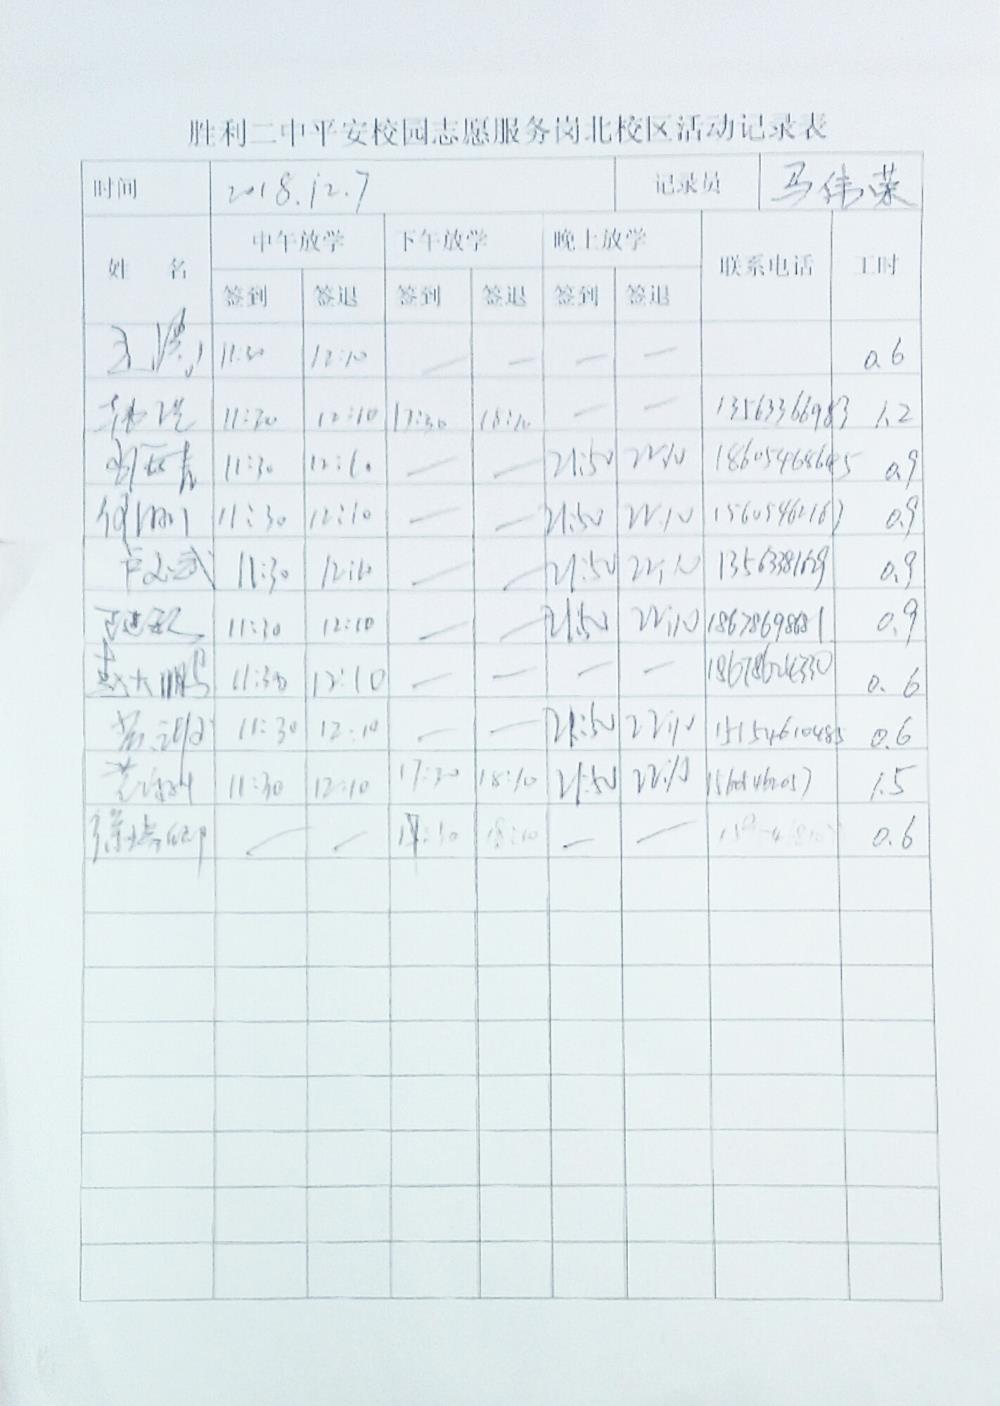 胜利二中平安校园志愿服务岗北校区活动记录表
时间 2018.12.7 记录员 马伟荣
姓 名 中午放学 下午放学 晚上放学 联系电话 工时
签到 签退 签到 签退 签到 签退
11:30 12:10 — — — — 0.6
11:30 12:10 17:30 18:10 — — 13563366983 1.2
11:30 12:10 — — 21:50 22:10 0.9
11:30 12:10 — — 21:50 22:10 0.9
11:30 12:10 — — 21:50 22:10 0.9
11:30 12:10 — — 21:50 22:10 0.9
大鹏 11:30 12:10 — — — — 18678624330 0.6
11:30 12:10 — — 21:50 22:10 15154610485 0.6
11:30 12:10 17:30 18:10 21:50 22:10 1.5
— — 17:30 18:10 — — 0.6